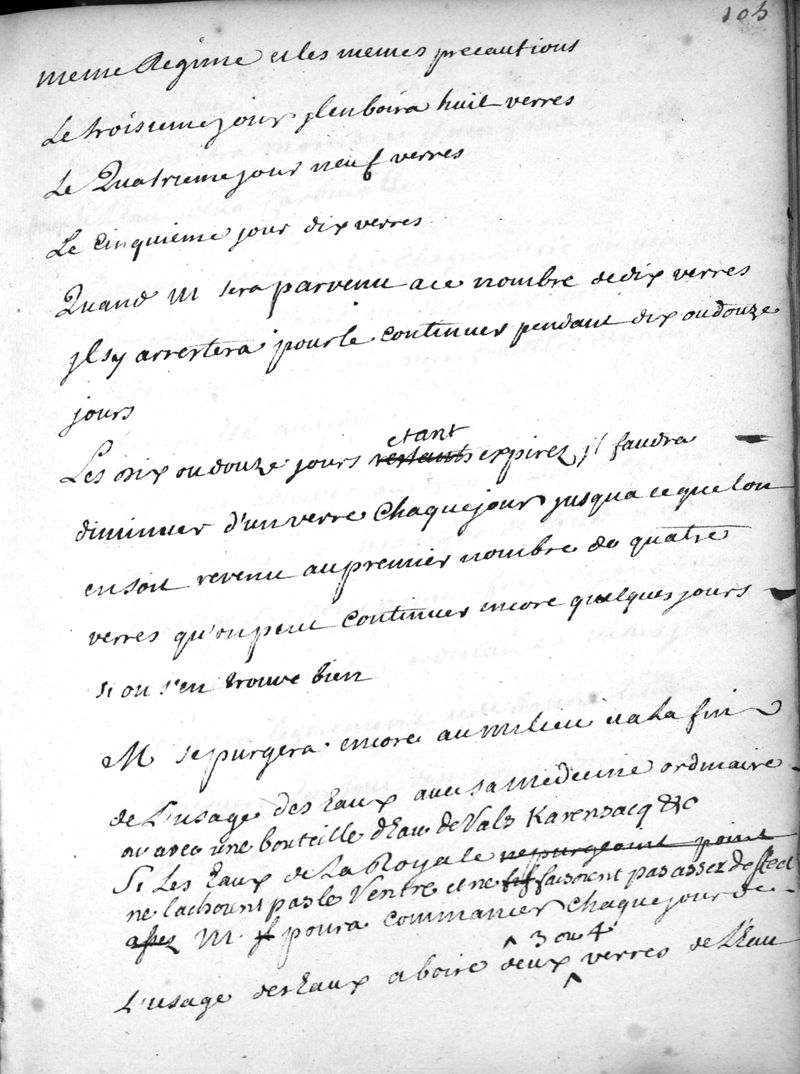 105
meme Regime et les memes precautions
Le troisieme jour jl en boira huit verres
Le Quatrieme jour neuf verres
Le cinquieme jour dix verres
Quand M sera parvenu a ce nombre de dix verres
jl sy arrestera pour le continuer pendant dix ou douze
jours
Les dix ou douze jours etant expirez, jl faudra
diminuer d'un verre chaque jour jusqua ce que lon
en soit revenu au premier nombre de quatre
verres qu'on peut continuer encore quelques jours
si on s'en trouve bien
M se purgera encore au milieu et a la fin
de L'usage des Eaux avec sa medecine ordinaire
ou avec une bouteille d'Eau de Vals &c
Si Les Eaux de La Royale ne purgeoint point
ne lachoint pas le Ventre et ne faisoient pas assez deffect
assez M. poura commancer chaque jour de
3 ou 4
L'usage des Eaux a boire deux verres de L'Eau